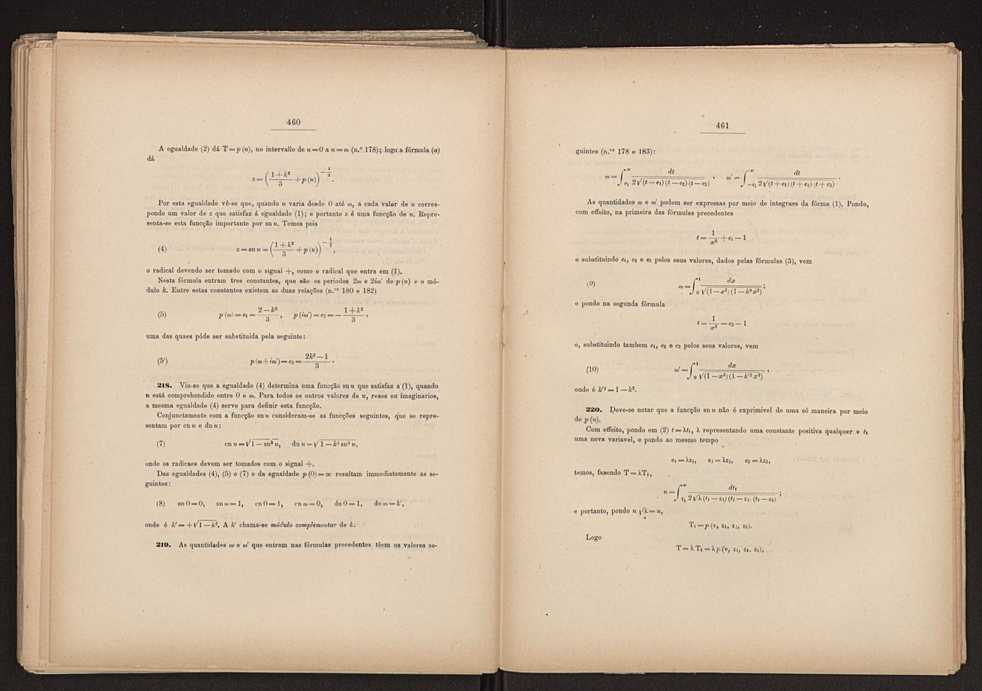 460
A egualdade (2) dá T = p (u), no intervallo de u = 0 a u = ω (n.º 178); logo a fórmula (a)
dá
z = ( (1 + k²)/3 + p (u) )^(-1/2).
Por esta egualdade vê-se que, quando u varia desde 0 até ω, a cada valor de u corres-
ponde um valor de z que satisfaz á egualdade (1); e portanto z é uma funcção de u. Repre-
senta-se esta funcção importante por sn u. Temos pois
(4) z = sn u = ( (1 + k²)/3 + p (u) )^(-1/2),
o radical devendo ser tomado com o signal +, como o radical que entra em (1).
Nesta fórmula entram tres constantes, que são os periodos 2ω e 2iω' de p (u) e o mó-
dulo k. Entre estas constantes existem as duas relações (n.ᵒˢ 180 e 182)
(5) p (ω) = e₁ = (2 − k²)/3, p (iω') = e₃ = − (1 + k²)/3,
uma das quaes póde ser substituida pela seguinte:
(5') p (ω + iω') = e₂ = (2k² − 1)/3.
218. Viu-se que a egualdade (4) determina uma funcção sn u que satisfaz a (1), quando
u está comprehendido entre 0 e ω. Para todos os outros valores de u, reaes ou imaginarios,
a mesma egualdade (4) serve para definir esta funcção.
Conjunctamente com a funcção sn u consideram-se as funcções seguintes, que se repre-
sentam por cn u e dn u:
(7) cn u = √(1 − sn² u), dn u = √(1 − k² sn² u),
onde os radicaes devem ser tomados com o signal +.
Das egualdades (4), (5) e (7) e da egualdade p (0) = ∞ resultam immediatamente as se-
guintes:
(8) sn 0 = 0, sn ω = 1, cn 0 = 1, cn ω = 0, dn 0 = 1, dn ω = k',
onde é k' = + √(1 − k²). A k' chama-se módulo complementar de k.
219. As quantidades ω e ω' que entram nas fórmulas precedentes têem os valores se-
461
guintes (n.ᵒˢ 178 e 183):
ω = ∫_{e₁}^{∞} dt / (2 √((t − e₁) (t − e₂) (t − e₃))), ω' = ∫_{−e₃}^{∞} dt / (2 √((t + e₁) (t + e₂) (t + e₃))).
As quantidades ω e ω' podem ser expressas por meio de integraes da fórma (1). Pondo,
com effeito, na primeira das fórmulas precedentes
t = 1/x² + e₁ − 1
e substituindo e₁, e₂ e e₃ pelos seus valores, dados pelas fórmulas (5), vem
(9) ω = ∫₀¹ dx / √((1 − x²) (1 − k² x²));
e pondo na segunda fórmula
t = 1/x² − e₃ − 1
e, substituindo tambem e₁, e₂ e e₃ pelos seus valores, vem
(10) ω' = ∫₀¹ dx / √((1 − x²) (1 − k'² x²)),
onde é k'² = 1 − k².
220. Deve-se notar que a funcção sn u não é exprimivel de uma só maneira por meio
de p (u).
Com effeito, pondo em (2) t = λt₁, λ representando uma constante positiva qualquer e t₁
uma nova variavel, e pondo ao mesmo tempo
e₁ = λε₁, e₂ = λε₂, e₃ = λε₃,
temos, fazendo T = λT₁,
u = ∫_{T₁}^{∞} dt₁ / (2 √λ (t₁ − ε₁) (t₁ − ε₂) (t₁ − ε₃));
e portanto, pondo u √λ = v,
T₁ = p (v, ε₁, ε₂, ε₃).
Logo
T = λ T₁ = λ p (v, ε₁, ε₂, ε₃),